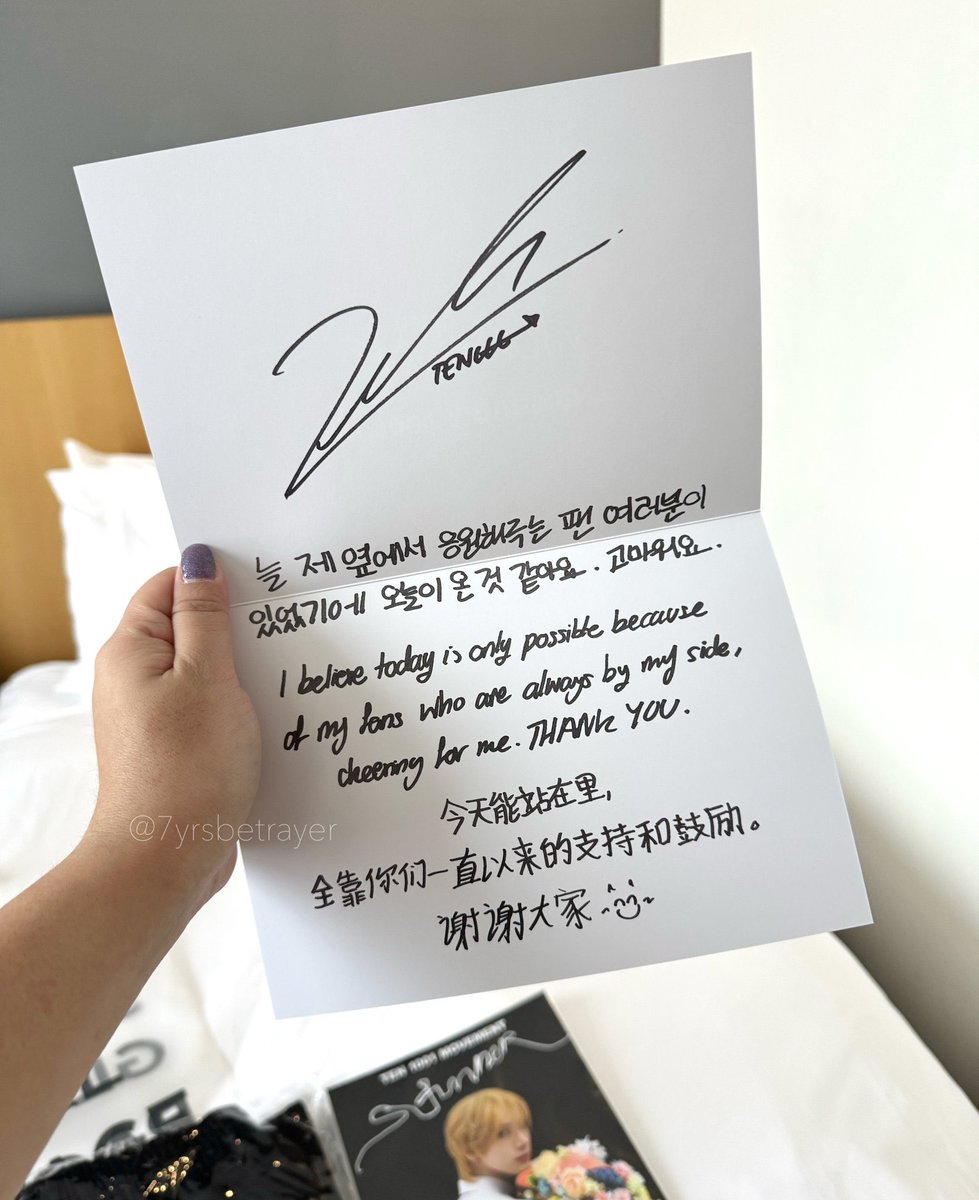 TENGGG
늘 제 옆에서 응원해주는 팬 여러분이
있었기에 오늘이 온 것 같아요. 고마워요.
I believe today is only possible because
of my fans who are always by my side,
cheering for me. THANK YOU.
今天能站在里,
全靠你们一直以来的支持和鼓励。
谢谢大家
@7yrsbetrayer
TEN 1001 MOVEMENT
Stunner